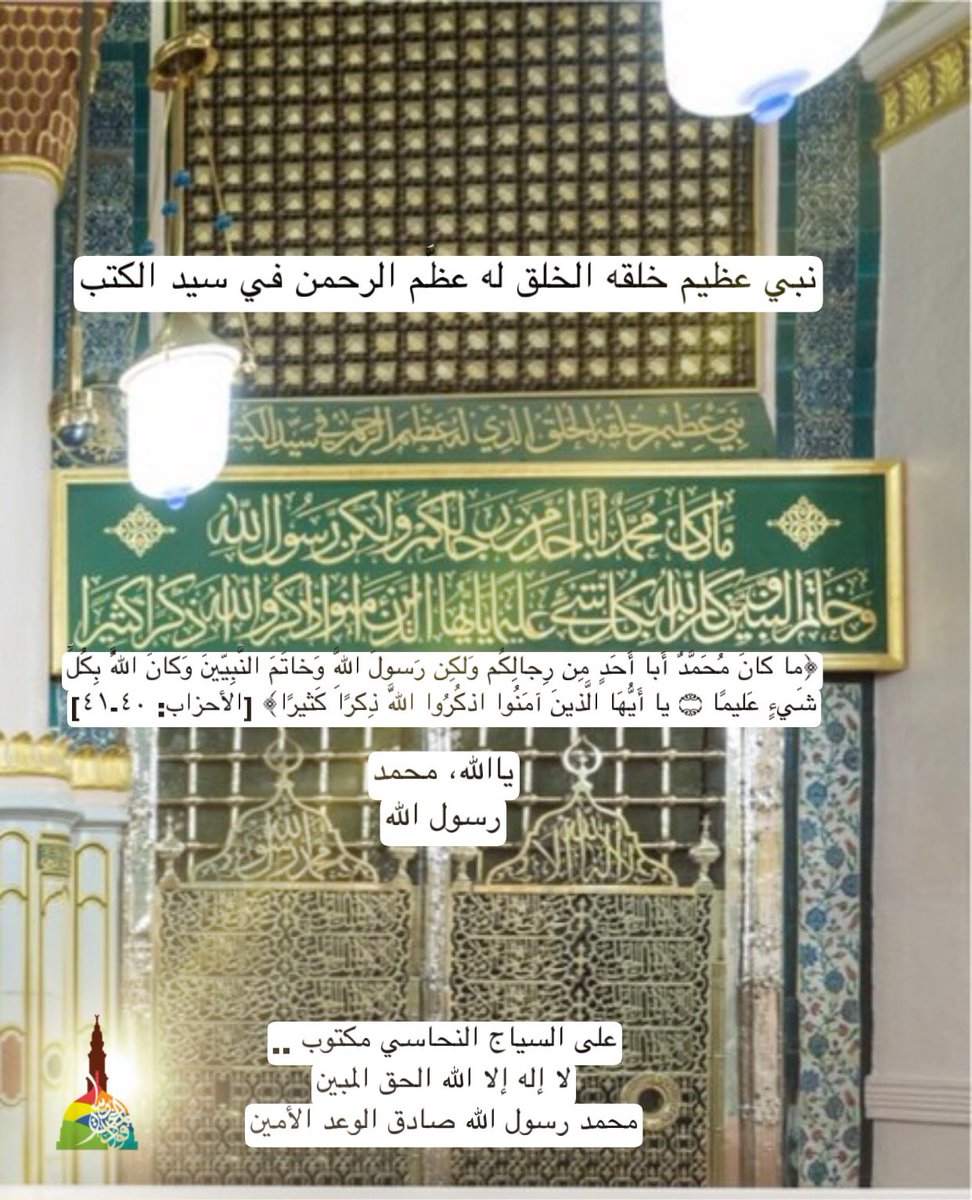 نبي عظيم خلقه الخلق له عظَّم الرحمن في سيد الكتب
نبي عظيم خلقه الخلق الذي له عظم الرحمن في سيد الكتب
ما كان محمد أبا أحد من رجالكم ولكن رسول الله
وخاتم النبيين وكان الله بكل شيء عليما يا أيها الذين آمنوا اذكروا الله ذكرا كثيرا
﴿ما كانَ مُحَمَّدٌ أَبا أَحَدٍ مِن رِجالِكُم وَلكِن رَسولَ اللَّهِ وَخاتَمَ النَّبِيّينَ وَكانَ اللَّهُ بِكُلِّ
شَيءٍ عَليمًا ۝ يا أَيُّهَا الَّذينَ آمَنُوا اذكُرُوا اللَّهَ ذِكرًا كَثيرًا﴾ [الأحزاب: ٤٠-٤١]
ياالله، محمد
رسول الله
لا إله إلا الله
محمد رسول الله
على السياج النحاسي مكتوب ..
لا إله إلا الله الحق المبين
محمد رسول الله صادق الوعد الأمين